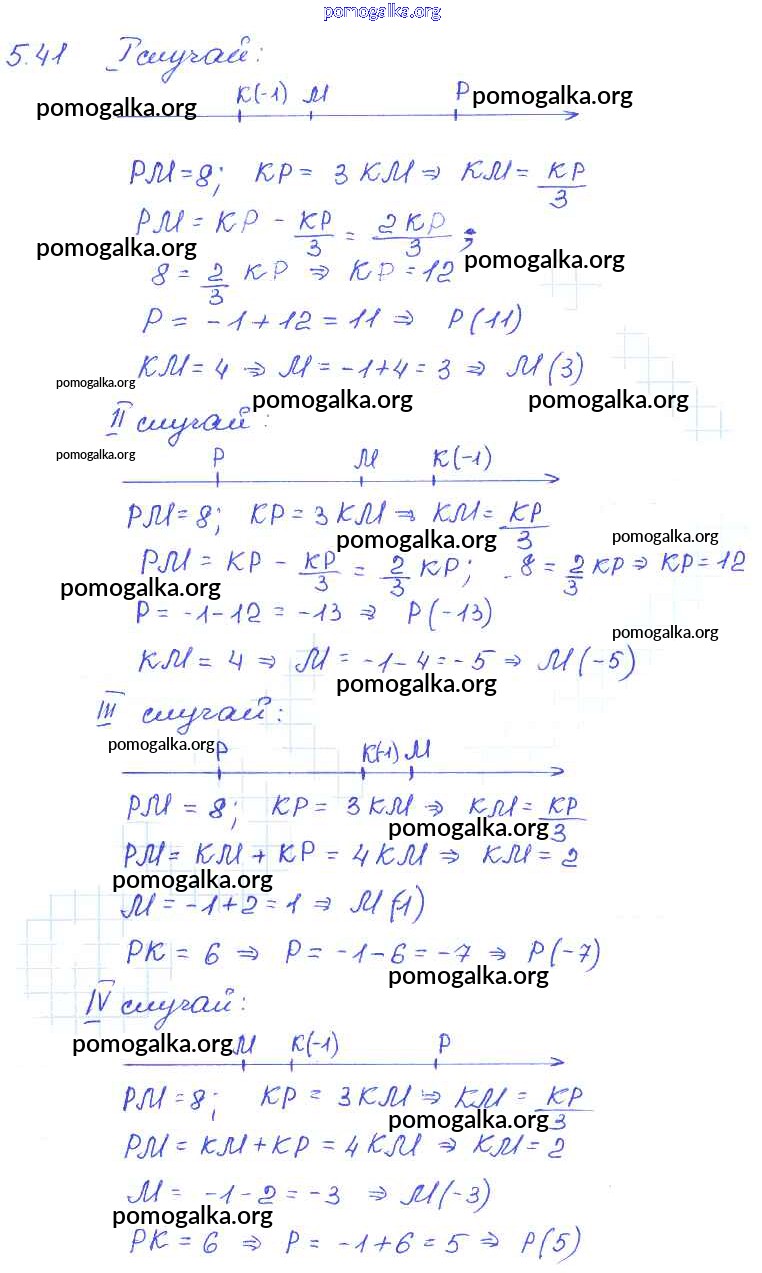 pomogalka.org
5.41 I случай:
K(-1) M P pomogalka.org
pomogalka.org
PM = 8; KP = 3 KM ⇒ KM = KP/3
PM = KP - KP/3 = 2KP/3;
pomogalka.org pomogalka.org
8 = 2/3 KP ⇒ KP = 12
P = -1 + 12 = 11 ⇒ P(11)
KM = 4 ⇒ M = -1+4 = 3 ⇒ M(3)
pomogalka.org pomogalka.org pomogalka.org
II случай:
pomogalka.org P M K(-1)
PM = 8; KP = 3 KM ⇒ KM = KP/3
pomogalka.org pomogalka.org
PM = KP - KP/3 = 2/3 KP; 8 = 2/3 KP ⇒ KP = 12
pomogalka.org
P = -1-12 = -13 ⇒ P(-13)
pomogalka.org
KM = 4 ⇒ M = -1-4 = -5 ⇒ M(-5)
pomogalka.org
III случай:
pomogalka.org P K(-1) M
PM = 8; KP = 3 KM ⇒ KM = KP/3
pomogalka.org
PM = KM + KP = 4 KM ⇒ KM = 2
pomogalka.org
M = -1+2 = 1 ⇒ M(1)
PK = 6 ⇒ P = -1-6 = -7 ⇒ P(-7)
pomogalka.org
IV случай:
pomogalka.org M K(-1) P
PM = 8; KP = 3 KM ⇒ KM = KP/3
pomogalka.org
PM = KM + KP = 4 KM ⇒ KM = 2
M = -1-2 = -3 ⇒ M(-3)
pomogalka.org
PK = 6 ⇒ P = -1+6 = 5 ⇒ P(5)